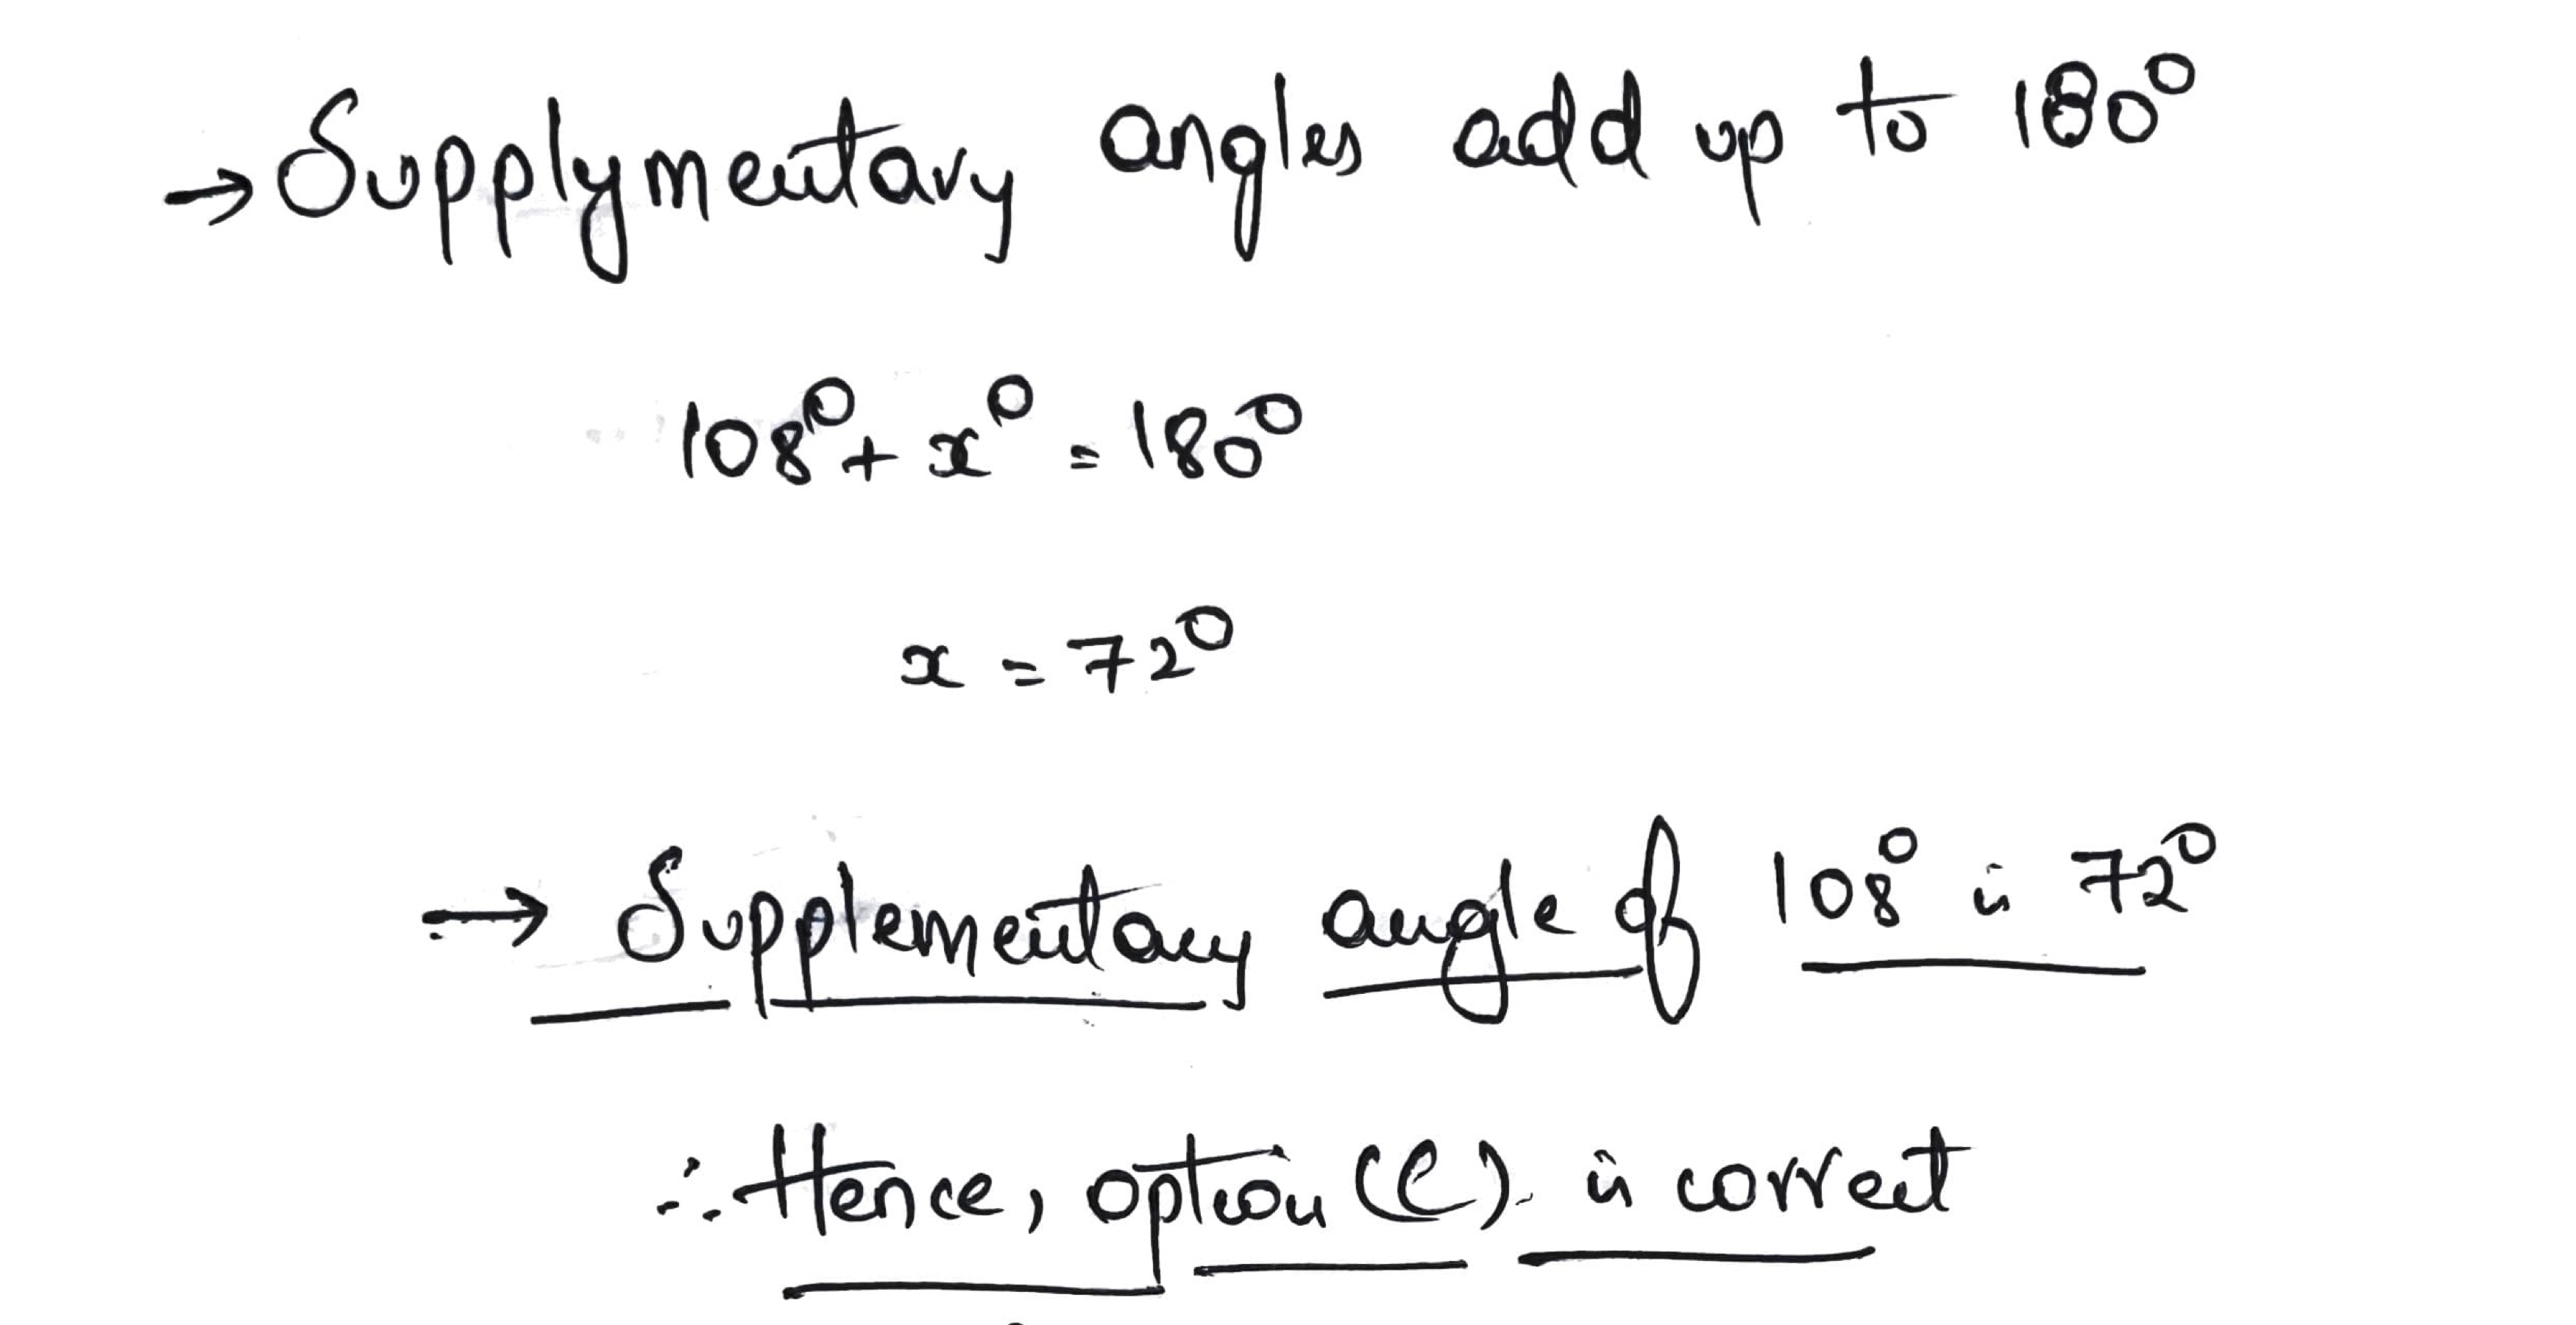 → Supplymentary angles add up to 180°
108° + x° = 180°
x = 72°
→ Supplementary angle of 108° is 72°
∴ Hence, option (C). is correct